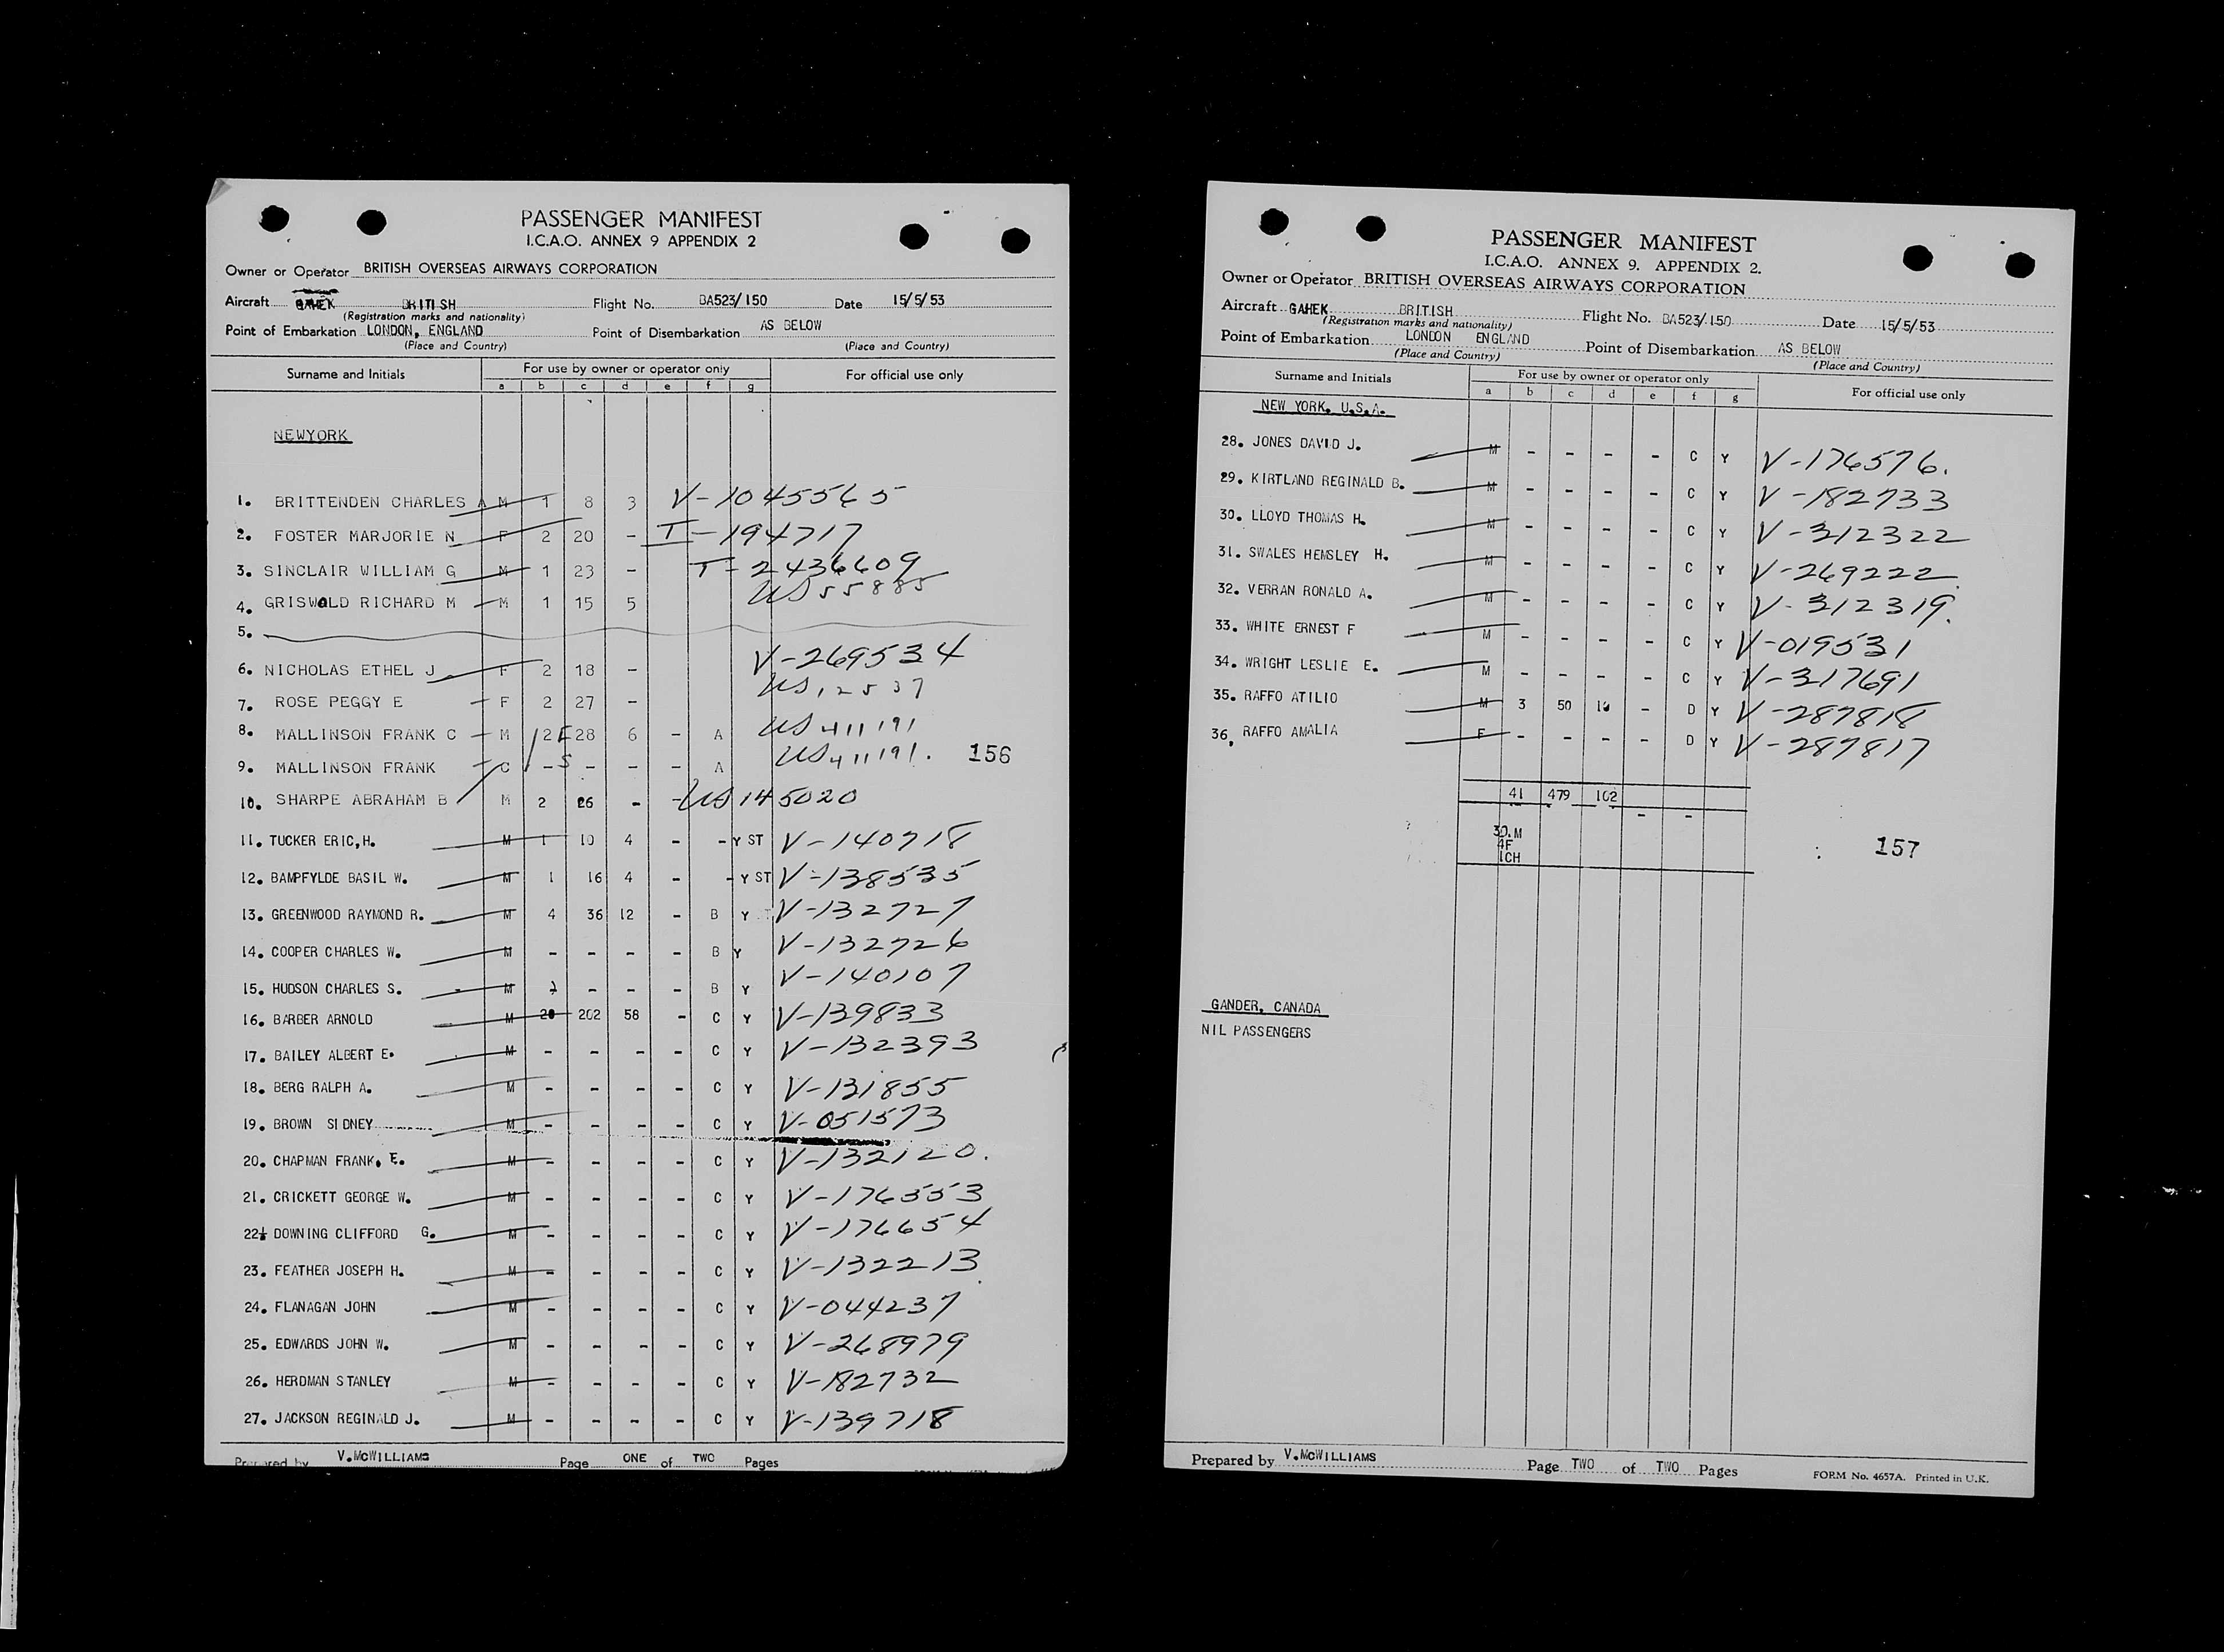 PASSENGER MANIFEST
I.C.A.O. ANNEX 9 APPENDIX 2
Owner or Operator BRITISH OVERSEAS AIRWAYS CORPORATION
Aircraft GAHEK BRITISH Flight No. BA523/150 Date 15/5/53
(Registration marks and nationality)
Point of Embarkation LONDON, ENGLAND Point of Disembarkation AS BELOW
(Place and Country) (Place and Country)
Surname and Initials For use by owner or operator only For official use only
a b c d e f g
NEWYORK
1. BRITTENDEN CHARLES A M 1 8 3 V-1045565
2. FOSTER MARJORIE N F 2 20 - T-194717
3. SINCLAIR WILLIAM G M 1 23 - T-2436609
4. GRISWOLD RICHARD M M 1 15 5 US 55885
5.
6. NICHOLAS ETHEL J F 2 18 - V-269534
7. ROSE PEGGY E F 2 27 - US 12537
8. MALLINSON FRANK C M 2 28 6 - A US 411191
9. MALLINSON FRANK C - - - - A US 411191. 156
10. SHARPE ABRAHAM B M 2 26 - - US 145020
11. TUCKER ERIC,H. M 1 10 4 - - Y ST V-140718
12. BAMPFYLDE BASIL W. M 1 16 4 - - Y ST V-138535
13. GREENWOOD RAYMOND R. M 4 36 12 - B Y V-132727
14. COOPER CHARLES W. M - - - - B Y V-132726
15. HUDSON CHARLES S. M - - - - B Y V-140107
16. BARBER ARNOLD M 20 202 58 - C Y V-139833
17. BAILEY ALBERT E. M - - - - C Y V-132393
18. BERG RALPH A. M - - - - C Y V-131855
19. BROWN SIDNEY M - - - - C Y V-051573
20. CHAPMAN FRANK, E. M - - - - C Y V-132120.
21. CRICKETT GEORGE W. M - - - - C Y V-176553
22. DOWNING CLIFFORD G. M - - - - C Y V-176654
23. FEATHER JOSEPH H. M - - - - C Y V-132213
24. FLANAGAN JOHN M - - - - C Y V-044237
25. EDWARDS JOHN W. M - - - - C Y V-268979
26. HERDMAN STANLEY M - - - - C Y V-182732
27. JACKSON REGINALD J. M - - - - C Y V-139718
Prepared by V.McWILLIAMS Page ONE of TWO Pages
PASSENGER MANIFEST
I.C.A.O. ANNEX 9. APPENDIX 2.
Owner or Operator BRITISH OVERSEAS AIRWAYS CORPORATION
Aircraft GAHEK BRITISH Flight No. BA523/150 Date 15/5/53
(Registration marks and nationality)
Point of Embarkation LONDON ENGLAND Point of Disembarkation AS BELOW
(Place and Country) (Place and Country)
Surname and Initials For use by owner or operator only For official use only
a b c d e f g
NEW YORK, U.S.A.
28. JONES DAVID J. M - - - - C Y V-176576.
29. KIRTLAND REGINALD B. M - - - - C Y V-182733
30. LLOYD THOMAS H. M - - - - C Y V-312322
31. SWALES HEMSLEY H. M - - - - C Y V-269222
32. VERRAN RONALD A. M - - - - C Y V-312319.
33. WHITE ERNEST F M - - - - C Y V-019531
34. WRIGHT LESLIE E. M - - - - C Y V-317691
35. RAFFO ATILIO M 3 50 10 - D Y V-287818
36. RAFFO AMALIA F - - - - D Y V-287817
41 479 102
- -
30.M
4F
1CH
157
GANDER, CANADA
NIL PASSENGERS
Prepared by V.McWILLIAMS Page TWO of TWO Pages FORM No. 4657A. Printed in U.K.